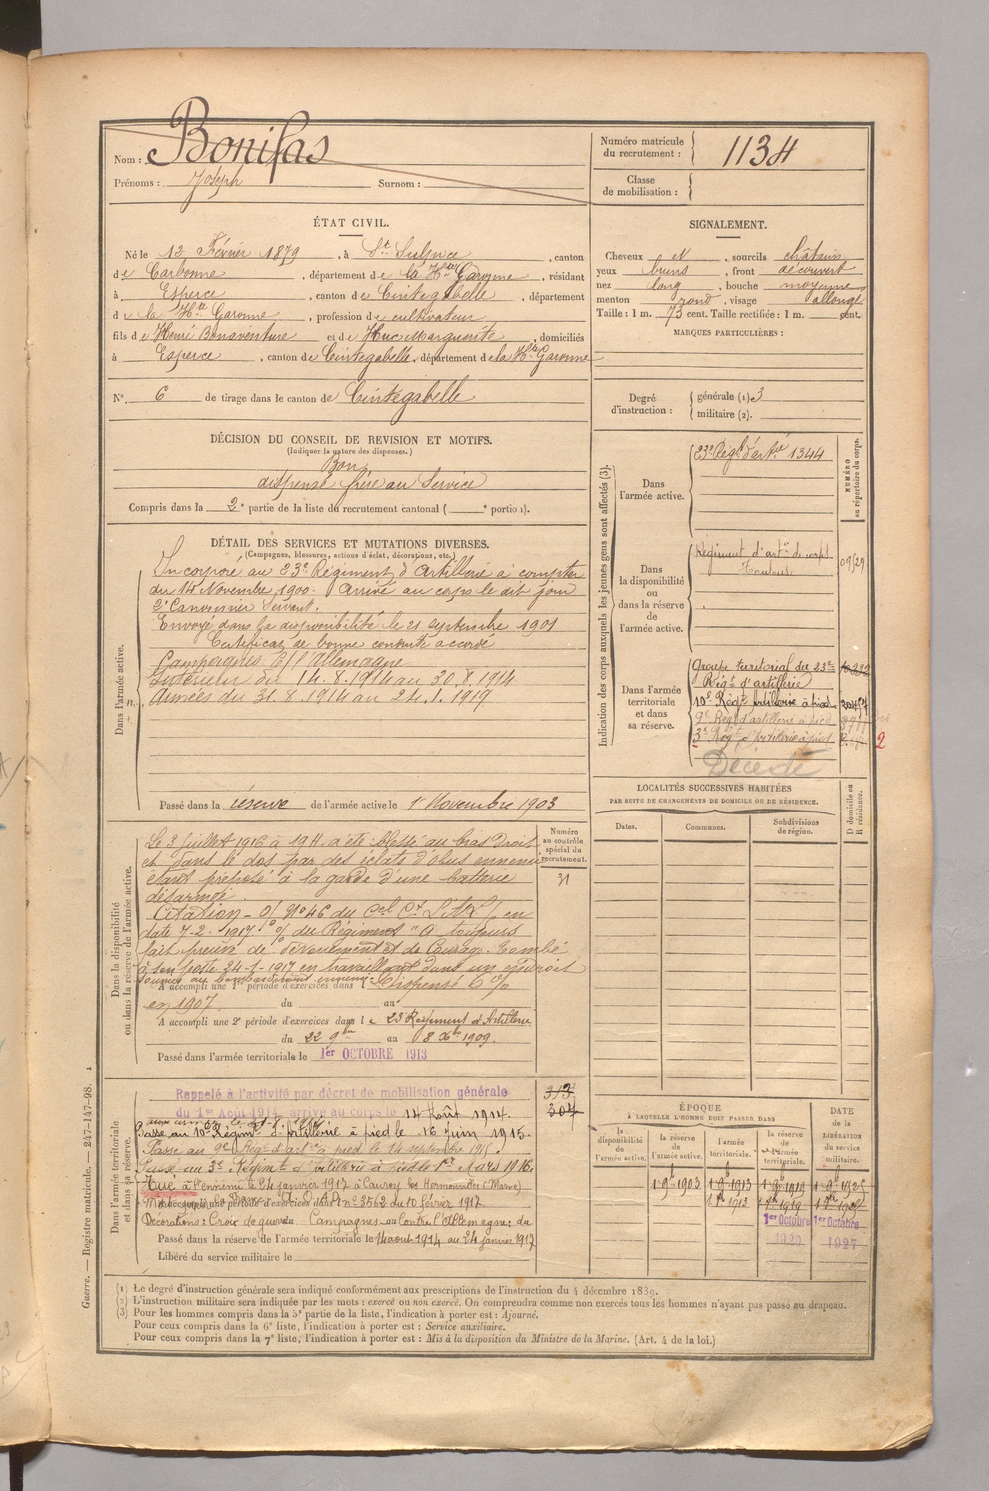 Nom : Bonifas
Prénoms : Joseph Surnom :
Numéro matricule du recrutement : 1134
Classe de mobilisation :
ÉTAT CIVIL.
Né le 12 Février 1879, à St Sulpice, canton
de Carbonne, département de la Hte Garonne, résidant
à Esperce, canton de Cintegabelle, département
de la Hte Garonne, profession de cultivateur
fils de Henri Bonaventure et de Huc Marguerite, domiciliés
à Esperce, canton de Cintegabelle, département de la Hte Garonne
N° 6 de tirage dans le canton de Cintegabelle
SIGNALEMENT.
Cheveux N, sourcils châtains
yeux bruns, front découvert
nez long, bouche moyenne
menton rond, visage allongé
Taille : 1 m. 73 cent. Taille rectifiée : 1 m. cent.
MARQUES PARTICULIÈRES :
Degré d'instruction : générale (1) 3
militaire (2).
DÉCISION DU CONSEIL DE REVISION ET MOTIFS.
(Indiquer la nature des dispenses.)
Bon
dispensé frère au Service
Compris dans la 2e partie de la liste du recrutement cantonal ( portion).
DÉTAIL DES SERVICES ET MUTATIONS DIVERSES.
(Campagnes, blessures, actions d'éclat, décorations, etc.)
Dans l'armée active.
Incorporé au 23e Régiment d'Artillerie à compter
du 14 Novembre 1900. Arrivé au corps le dit jour
2e Canonnier Servant.
Envoyé dans la disponibilité le 21 septembre 1901
Certificat de bonne conduite accordé
Campagnes C/ l'Allemagne
Intérieur du 14.8.1914 au 30.8.1914
Armées du 31.8.1914 au 24.1.1919
Passé dans la réserve de l'armée active le 1er Novembre 1903
Indication des corps auxquels les jeunes gens sont affectés (3).
NUMÉRO au répertoire du corps.
Dans l'armée active.
23e Régt d'artie 1344
Dans la disponibilité ou dans la réserve de l'armée active.
Régiment d'artie de corps
Toulouse
09/29
Dans l'armée territoriale et dans sa réserve.
Groupe territorial du 23e
Régt d'artillerie
10e Régt d'artillerie à pied
9e Régt d'artillerie à pied
3e Régt d'artillerie à pied
2
Décédé
LOCALITÉS SUCCESSIVES HABITÉES
PAR SUITE DE CHANGEMENTS DE DOMICILE OU DE RÉSIDENCE.
Dates. Communes. Subdivisions de région. D domicile ou R résidence.
Dans la disponibilité ou dans la réserve de l'armée active.
Numéro au contrôle spécial du recrutement.
31
Le 3 juillet 1916 à 19 H. a été blessé au bras Droit
et dans le dos par des éclats d'obus ennemi
étant préposé à la garde d'une batterie
désarmée.
Citation - O/ N° 46 du Cel Ct L'A en
date 7-2-1917 O/ du Régiment "A toujours
fait preuve de dévouement et de Courage. Tombé
à son poste 24-1-1917 en travaillant dans un endroit
soumis au bombardement ennemi
A accompli une 1re période d'exercices dans l Dispensé
en 1907 du au
A accompli une 2e période d'exercices dans le 23e Régiment d'Artillerie
du 22 9bre au 8 Xbre 1909.
Passé dans l'armée territoriale le 1er OCTOBRE 1913
Dans l'armée territoriale et dans sa réserve.
Rappelé à l'activité par décret de mobilisation générale
du 1er Août 1914, arrivé au corps le 14 Août 1914.
313
307
Passé au 10e Régimt d'artillerie à pied le 16 juin 1915.
Passé au 9e Rég. d'artie à pied le 14 septembre 1915.
Passé au 3e Régiment d'artillerie à pied le 1er Mars 1916.
Tué à l'ennemi le 24 janvier 1917 à Cauroy les Hermonville (Marne)
A accompli une période d'exercices dans l n° 3562 du 10 février 1917
Décorations : Croix de guerre Campagnes : Contre l'Allemagne : du
du au
Passé dans la réserve de l'armée territoriale le 14 aout 1914 au 24 janvier 1917
Libéré du service militaire le
ÉPOQUE
À LAQUELLE L'HOMME DOIT PASSER DANS
DATE DE LA LIBÉRATION DU SERVICE MILITAIRE.
la disponibilité de l'armée active. la réserve de l'armée active. l'armée territoriale. la réserve de l'armée territoriale.
1 9b 1903 1 9b 1913 1 9b 1919
1er Octobre 1er Octobre
1920 1927
(1) Le degré d'instruction générale sera indiqué conformément aux prescriptions de l'instruction du 4 décembre 1889.
(2) L'instruction militaire sera indiquée par les mots : exercé ou non exercé. On comprendra comme non exercés tous les hommes n'ayant pas passé au drapeau.
(3) Pour les hommes compris dans la 5e partie de la liste, l'indication à porter est : Ajourné.
Pour ceux compris dans la 6e liste, l'indication à porter est : Service auxiliaire.
Pour ceux compris dans la 7e liste, l'indication à porter est : Mis à la disposition du Ministre de la Marine. (Art. 4 de la loi.)
Guerre. — Registre matricule. — 247-147-98. 1